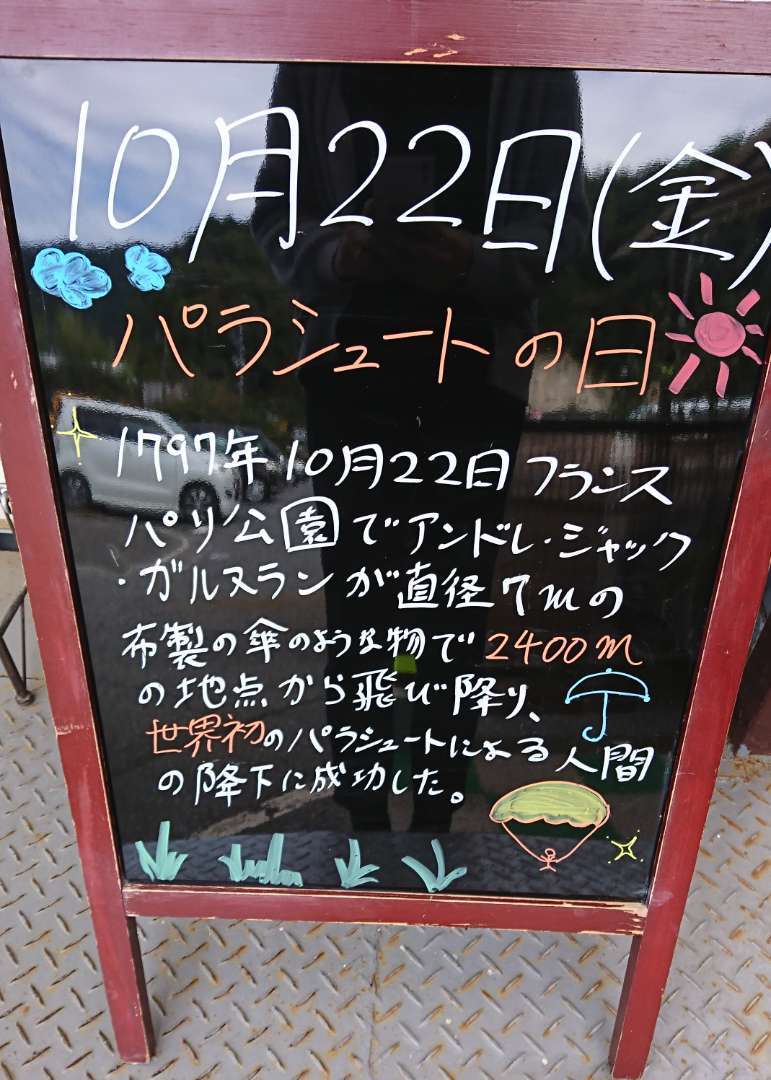 10月22日(金)
パラシュートの日
1797年10月22日フランス
パリ公園でアンドレ・ジャック
・ガルヌランが直径7mの
布製の傘のような物で2400m
の地点から飛び降り、
世界初のパラシュートによる人間
の降下に成功した。